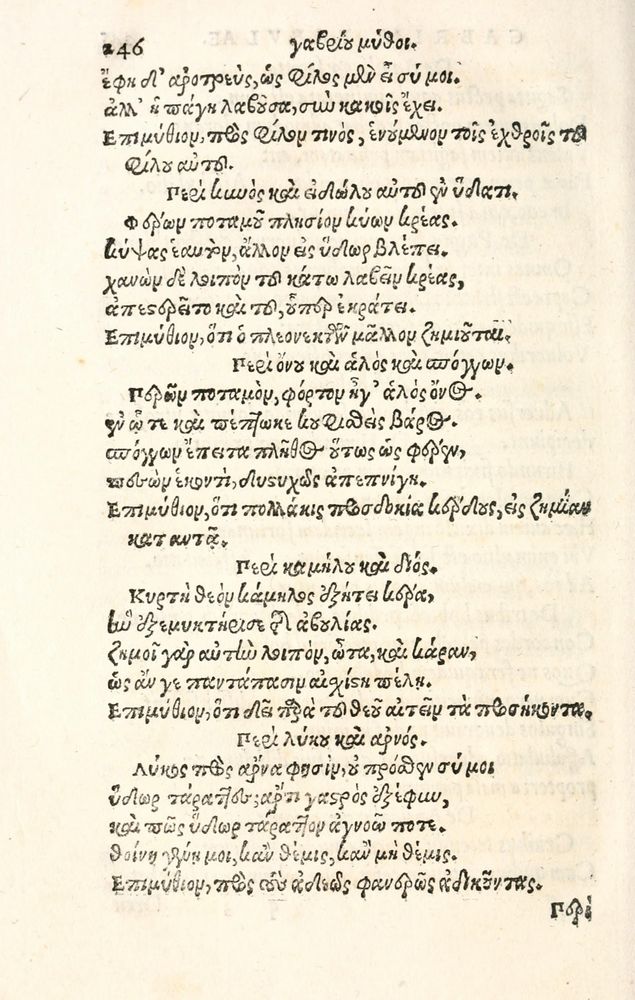 246 γαβρίου μῦθοι.
ἔφη δ' ἀροτρεὺς, ὡς φίλος μὲν εἶ σύ μοι.
ἀλλ' ἡ πάγη λαβοῦσα, σὺν κακοῖς ἔχει.
Επιμύθιον, πρὸς φίλον τινὸς, ἑνούμενον τοῖς ἐχθροῖς τοῦ
φίλου αὐτοῦ.
Περὶ κυνὸς καὶ εἰδώλου αὐτοῦ ἐν ὕδατι.
Φέρων ποταμοῦ πλησίον κύων κρέας.
κύψας ἑαυτὸν, ἄλλον εἰς ὕδωρ βλέπει.
χανὼν δὲ λοιπὸν τοῦ κάτω λαβεῖν κρέας,
ἀπεστερεῖτο καὶ τοῦ, οὗπερ ἐκράτει.
Επιμύθιον, ὅτι ὁ πλεονεκτῶν μᾶλλον ζημιοῦται.
Περὶ ὄνου καὶ ἁλὸς καὶ σπόγγων.
Περῶν ποταμὸν, φόρτον ἦγ' ἁλὸς ὄνος.
ἐν ᾧ τε καὶ πέπτωκε κουφισθεὶς βάρος.
σπόγγων ἔπειτα πλῆθος οὕτως ὡς φέρειν,
πεσὼν ἑκοντὶ, δυστυχῶς ἀπεπνίγη.
Επιμύθιον, ὅτι πολλάκις προσδοκία κέρδους, εἰς ζημίαν
καταντᾷ.
Περὶ καμήλου καὶ διός.
Κυρτὴ θεὸν κάμηλος ἐξῄτει κέρα,
ἣν ἐξεμυκτήρισε τῆς ἀβουλίας.
ζημοῖ γὰρ αὐτὴν λοιπὸν, ὦτα, καὶ κάραν,
ὡς ἄν γε παντάπασιν αἰχίστη πέλῃ.
Επιμύθιον, ὅτι δεῖ παρὰ τοῦ θεοῦ αἰτεῖν τὰ προσήκοντα.
Περὶ λύκου καὶ ἀρνός.
Λύκος πρὸς ἄρνα φησὶν, οὐ πρόσθεν σύ μοι
ὕδωρ τάραττες; ἄρτι γαστρὸς ἐξέφυν,
καὶ πῶς ὕδωρ τάραττον ἀγνοῶ ποτε.
θοίνη γένῃ μοι, κἂν θέμις, κἂν μὴ θέμις.
Επιμύθιον, πρὸς τοὺς ἀδεῶς φανερῶς ἀδικοῦντας.
Περὶ